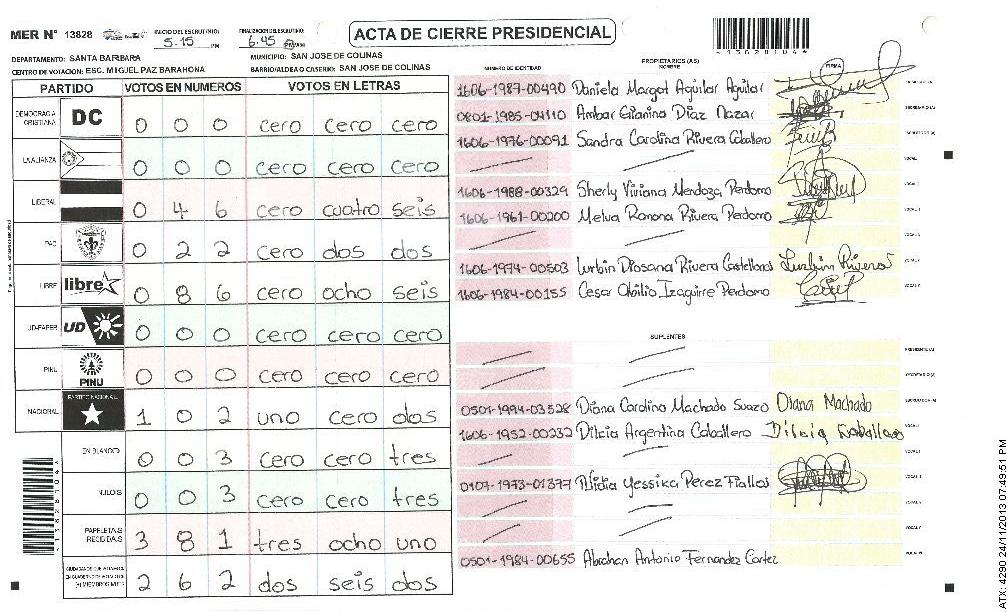 MER N° 13828
INICIO DEL ESCRUTINIO: 5:15 PM
FINALIZACION DEL ESCRUTINIO: 6:45 PM
ACTA DE CIERRE PRESIDENCIAL
DEPARTAMENTO: SANTA BARBARA
MUNICIPIO: SAN JOSE DE COLINAS
CENTRO DE VOTACION: ESC. MIGUEL PAZ BARAHONA
BARRIO/ALDEA O CASERIO: SAN JOSE DE COLINAS
PARTIDO VOTOS EN NUMEROS VOTOS EN LETRAS
DEMOCRACIA CRISTIANA DC 0 0 0 cero cero cero
LA ALIANZA 0 0 0 cero cero cero
LIBERAL 0 4 6 cero cuatro seis
PAC 0 2 2 cero dos dos
LIBRE libre 0 8 6 cero ocho seis
UD-FAPER UD 0 0 0 cero cero cero
PINU PINU 0 0 0 cero cero cero
NACIONAL PARTIDO NACIONAL 1 0 2 uno cero dos
EN BLANCO 0 0 3 cero cero tres
NULOS 0 0 3 cero cero tres
PAPELETAS RECIBIDAS 3 8 1 tres ocho uno
2 6 2 dos seis dos
NUMERO DE IDENTIDAD
PROPIETARIOS (AS)
NOMBRE
FIRMA
1606-1987-00490 Daniela Margot Aguilar Aguilar
0801-1985-04110 Ambar Gianina Diaz Nazar
1606-1976-00091 Sandra Carolina Rivera Caballero
VOCAL
1606-1988-00329 Sherly Viviana Mendoza Perdomo
1606-1961-00200 Melva Ramona Rivera Perdomo
1606-1974-00503 Lurbin Diosana Rivera Castellanos Lurbin Rivera
1606-1984-00155 Cesar Obilio Izaguirre Perdomo
SUPLENTES
0501-1994-03528 Diana Carolina Machado Suazo Diana Machado
1606-1952-00232 Dilcia Argentina Caballero Dilcia Caballero
0107-1973-01377 Yessika Perez Fiallos
0501-1984-00655 Abrahan Antonio Fernandez Cortez
ATX: 4290 24/11/2013 07:49:51 PM